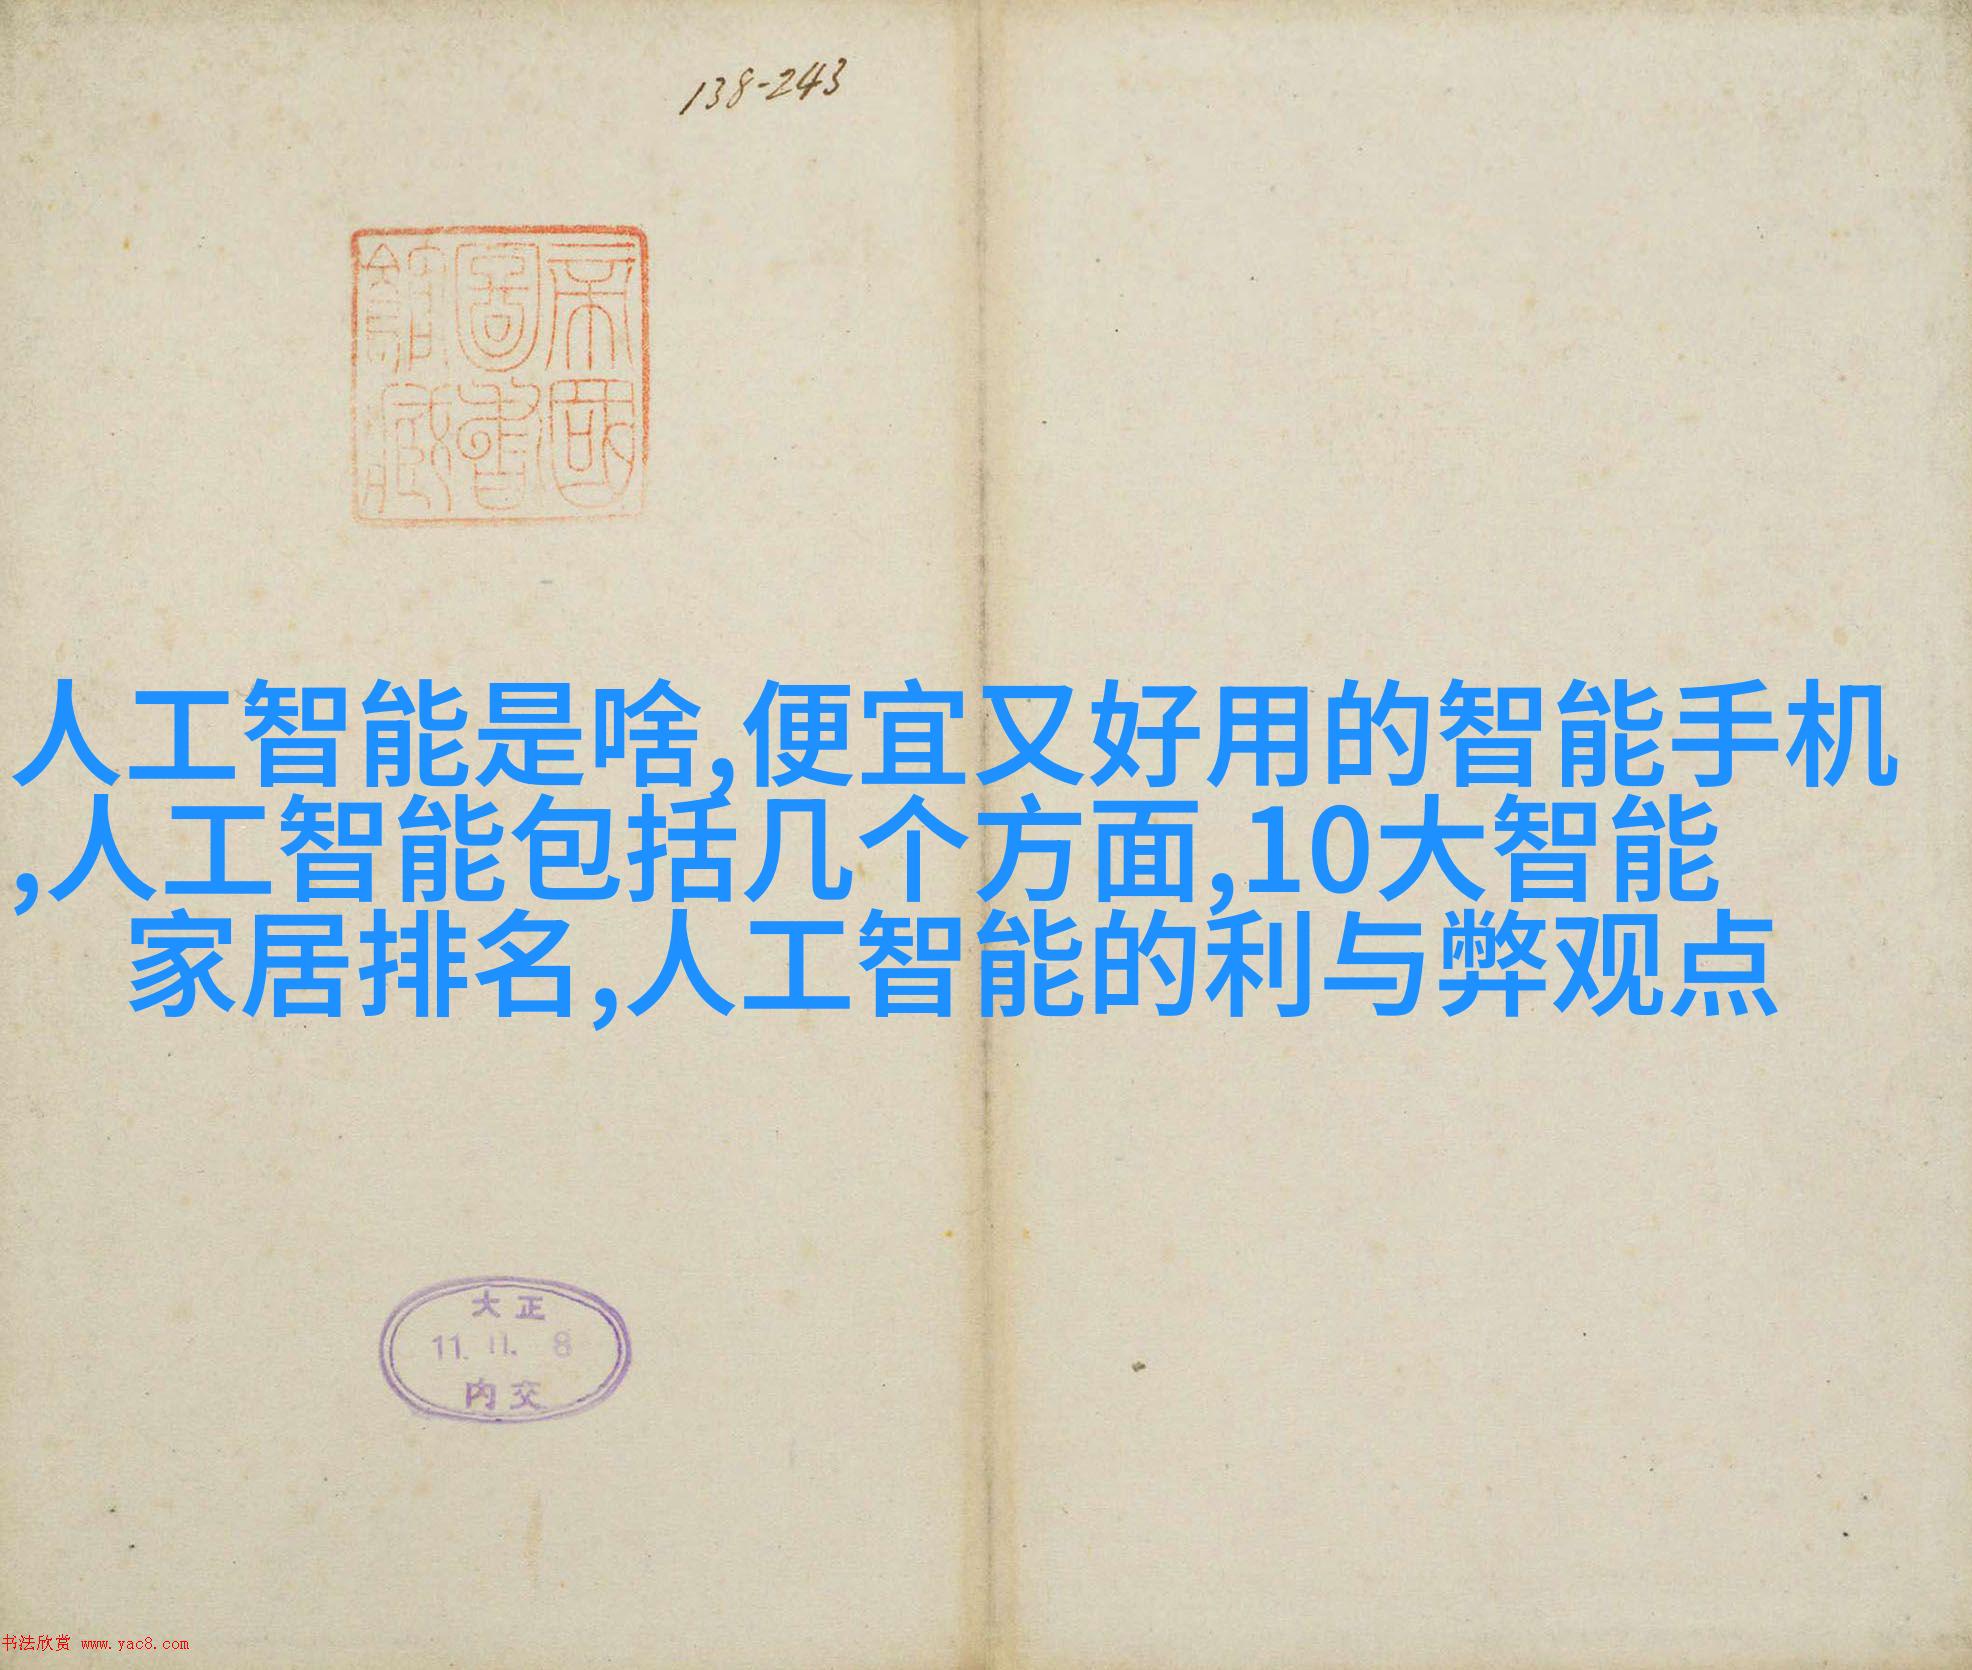 138-243
帝國
圖書
館藏
人工智能是啥,便宜又好用的智能手机
,人工智能包括几个方面,10大智能
家居排名,人工智能的利与弊观点
大正
11. 11. 8
内交
书法欣赏 www.yac8.com